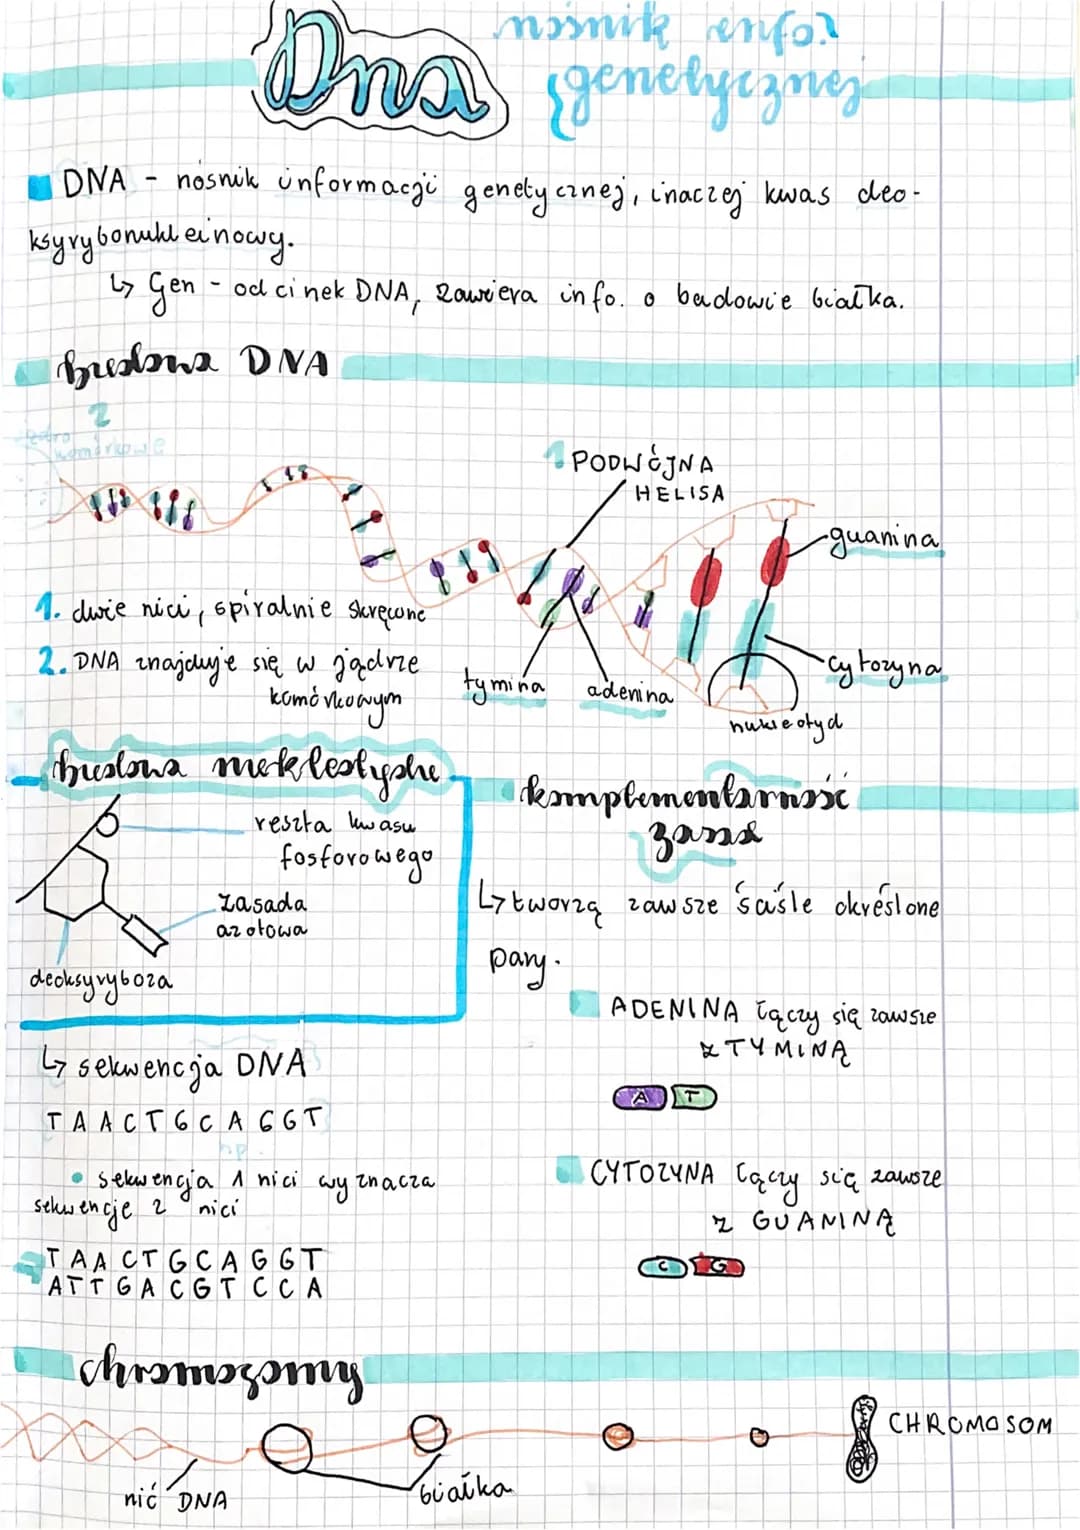 Dna
nośnik info.
genetycznej
DNA - nośnik informacji genetycznej, inaczej kwas deo-
ksyrybonukleinowy.
↳ Gen - odcinek DNA, zawiera info. o budowie białka.
budowa DNA
2
jądro
komórkowe
1 PODWÓJNA
HELISA
guanina
1. dwie nici, spiralnie skręcone
2. DNA znajduje się w jądrze
komórkowym
tymina
adenina
cytozyna
nukleotyd
budowa nukleotydu
reszta kwasu
fosforowego
zasada
azotowa
deoksyryboza
komplementarność
zasad
↳ tworzą zawsze ściśle określone
pary.
ADENINA łączy się zawsze
z TYMINĄ
A T
CYTOZYNA łączy się zawsze
z GUANINĄ
C G
↳ sekwencja DNA
TAACTGCAGGT
np.
• sekwencja 1 nici wyznacza
sekwencje 2 nici
TAACTGCAGGT
ATTGACGTCCA
chromozomy
nić DNA
białka
CHROMOSOM